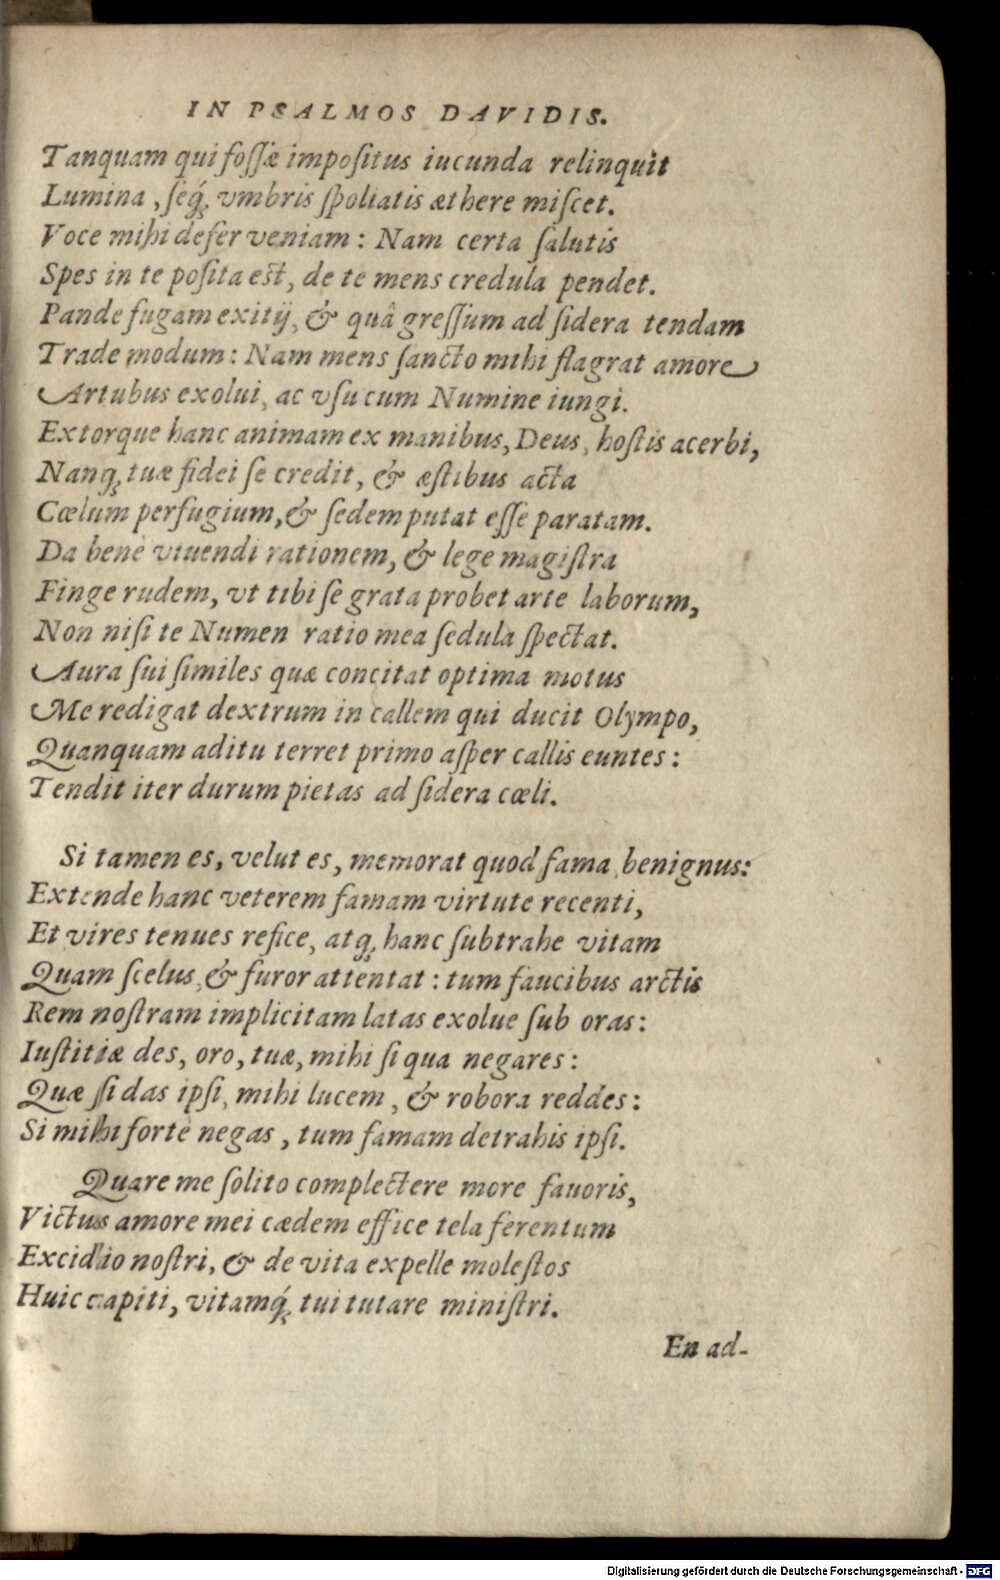 IN PSALMOS DAVIDIS.
Tanquam qui fossæ impositus iucunda relinquit
Lumina, seq́; vmbris spoliatis æthere miscet.
Voce mihi defer veniam: Nam certa salutis
Spes in te posita est, de te mens credula pendet.
Pande fugam exitij, & quâ gressum ad sidera tendam
Trade modum: Nam mens sancto mihi flagrat amore
Artubus exolui, ac vsu cum Numine iungi.
Extorque hanc animam ex manibus, Deus, hostis acerbi,
Nanq; tuæ fidei se credit, & æstibus acta
Cœlum perfugium, & sedem putat esse paratam.
Da benè viuendi rationem, & lege magistra
Finge rudem, vt tibi se grata probet arte laborum,
Non nisi te Numen ratio mea sedula spectat.
Aura sui similes quæ concitat optima motus
Me redigat dextrum in callem qui ducit Olympo,
Quanquam aditu terret primo asper callis euntes:
Tendit iter durum pietas ad sidera cœli.
Si tamen es, velut es, memorat quod fama, benignus:
Extende hanc veterem famam virtute recenti,
Et vires tenues refice, atq; hanc subtrahe vitam
Quam scelus, & furor attentat: tum faucibus arctis
Rem nostram implicitam latas exolue sub oras:
Iustitiæ des, oro, tuæ, mihi si qua negares:
Quæ si das ipsi, mihi lucem, & robora reddes:
Si mihi fortè negas, tum famam detrahis ipsi.
Quare me solito complectere more fauoris,
Victus amore mei cædem effice tela ferentum
Excidio nostri, & de vita expelle molestos
Huic capiti, vitamq́; tui tutare ministri.
En ad-
Digitalisierung gefördert durch die Deutsche Forschungsgemeinschaft - DFG